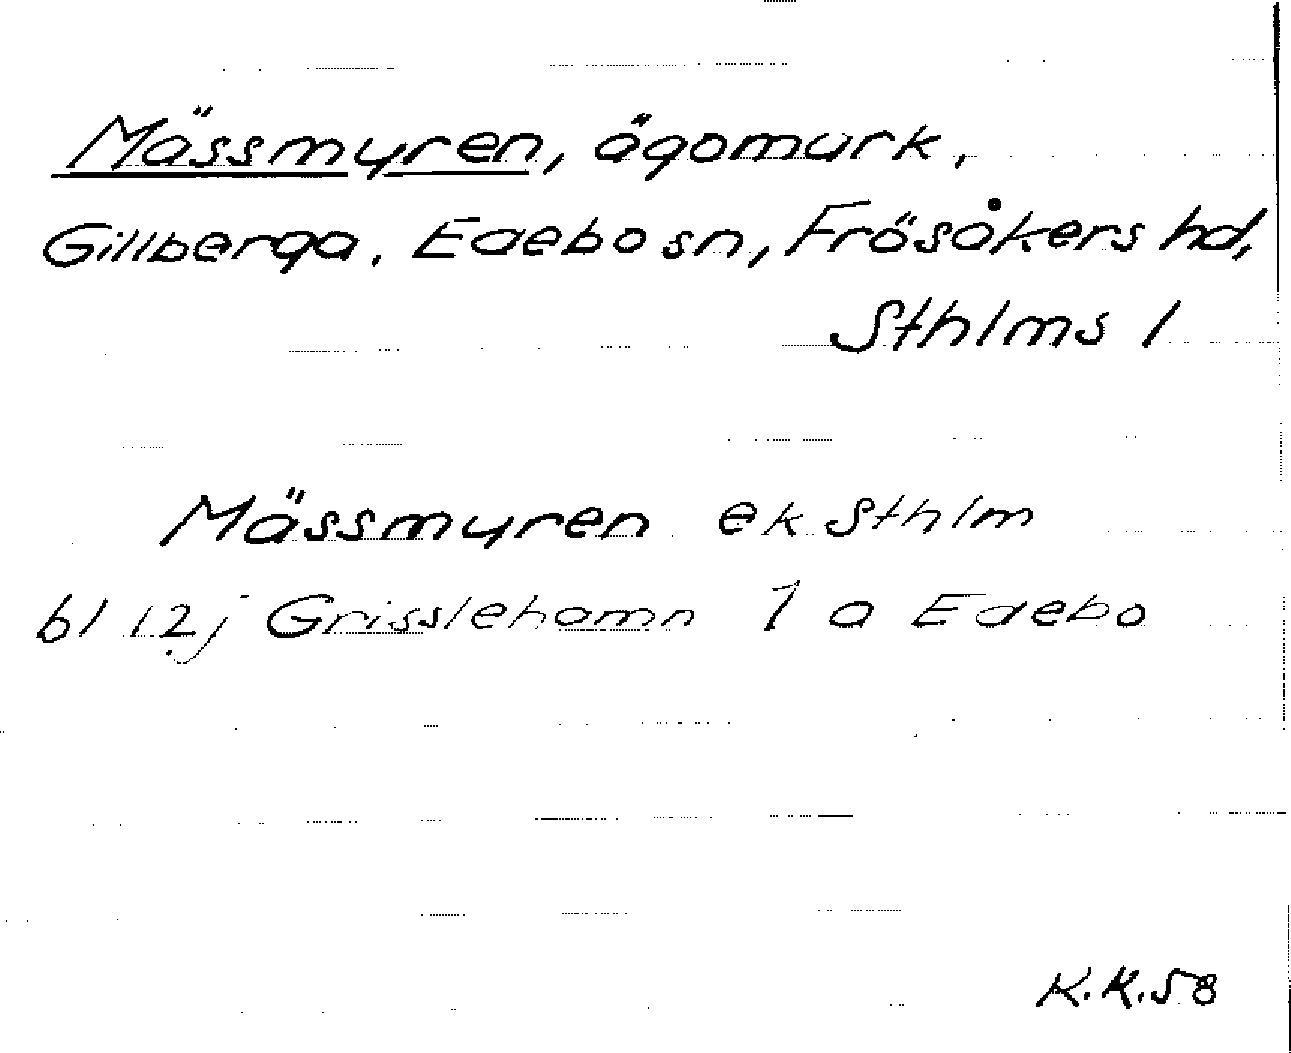 Mässmyren, ägomark,
Gillberga, Edebo sn, Frösåkers hd,
Sthlms l
Mässmyren ek Sthlm
bl 12j Grisslehamn 1 a Edebo
K.K.58